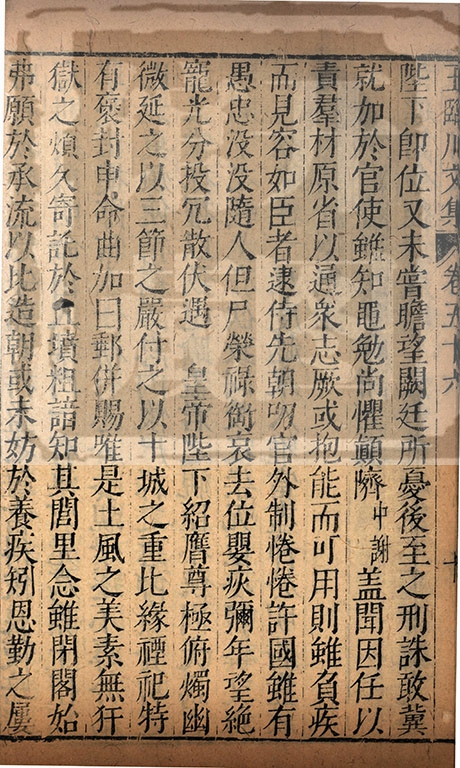 王臨川文集 卷五十六 十
陛下卽位又未嘗瞻望闕廷所憂後至之刑誅敢冀
就加於官使雖知黽勉尚懼顛隮中謝蓋聞因任以
責羣材原省以通衆志厥或抱能而可用則雖負疾
而見容如臣者逮侍先朝叨官外制惓惓許國雖有
愚忠没没隨人但尸榮祿銜哀去位嬰疢彌年望絶
寵光分投冗散伏遇 皇帝陛下紹膺尊極俯燭幽
微延之以三節之嚴付之以十城之重比緣禋祀特
有褒封申命曲加曰郵併賜唯是土風之美素無犴
獄之煩久寄託於丘墳粗諳知其閭里念雖閉閤始
弗願於承流以比造朝或未妨於養疾矧恩勤之屢